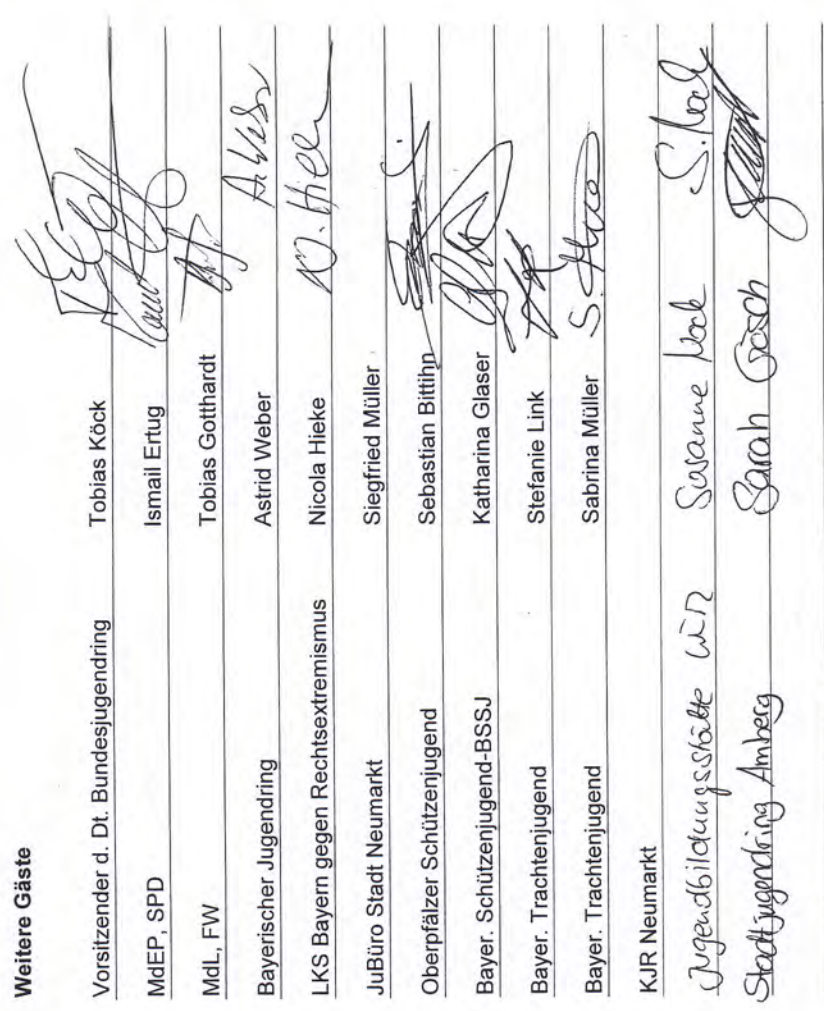 Weitere Gäste
Vorsitzender d. Dt. Bundesjugendring Tobias Köck
MdEP, SPD Ismail Ertug
MdL, FW Tobias Gotthardt
Bayerischer Jugendring Astrid Weber
LKS Bayern gegen Rechtsextremismus Nicola Hieke N. Hieke
JuBüro Stadt Neumarkt Siegfried Müller
Oberpfälzer Schützenjugend Sebastian Bittihn
Bayer. Schützenjugend-BSSJ Katharina Glaser
Bayer. Trachtenjugend Stefanie Link
Bayer. Trachtenjugend Sabrina Müller
KJR Neumarkt
Jugendbildungsstätte WÜR Susanne
Stadtjugendring Amberg Sarah Gösch